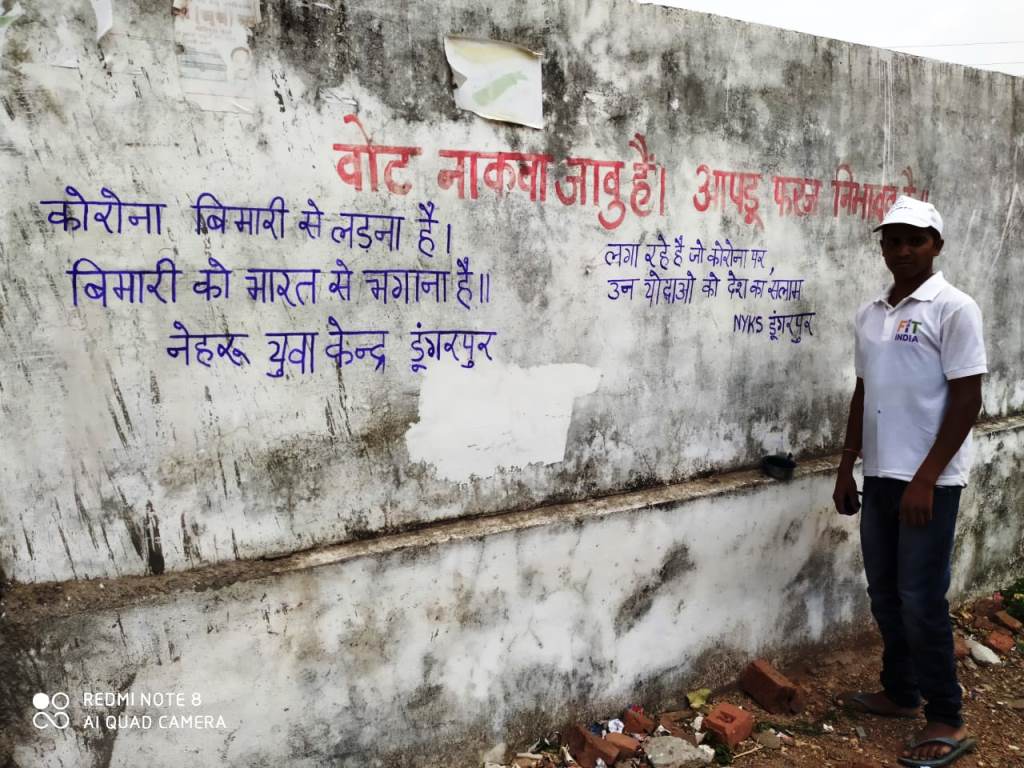 वोट नाकवा जावु है। आपडू फरज निभावद
कोरोना बिमारी से लड़ना है।
बिमारी को भारत से भगाना है॥
नेहरू युवा केन्द्र डूंगरपुर
लगा रहे है जो कोरोना पर,
उन योद्वाओ को देश का सलाम
NYKS डूंगरपुर
FIT
INDIA
REDMI NOTE 8
AI QUAD CAMERA